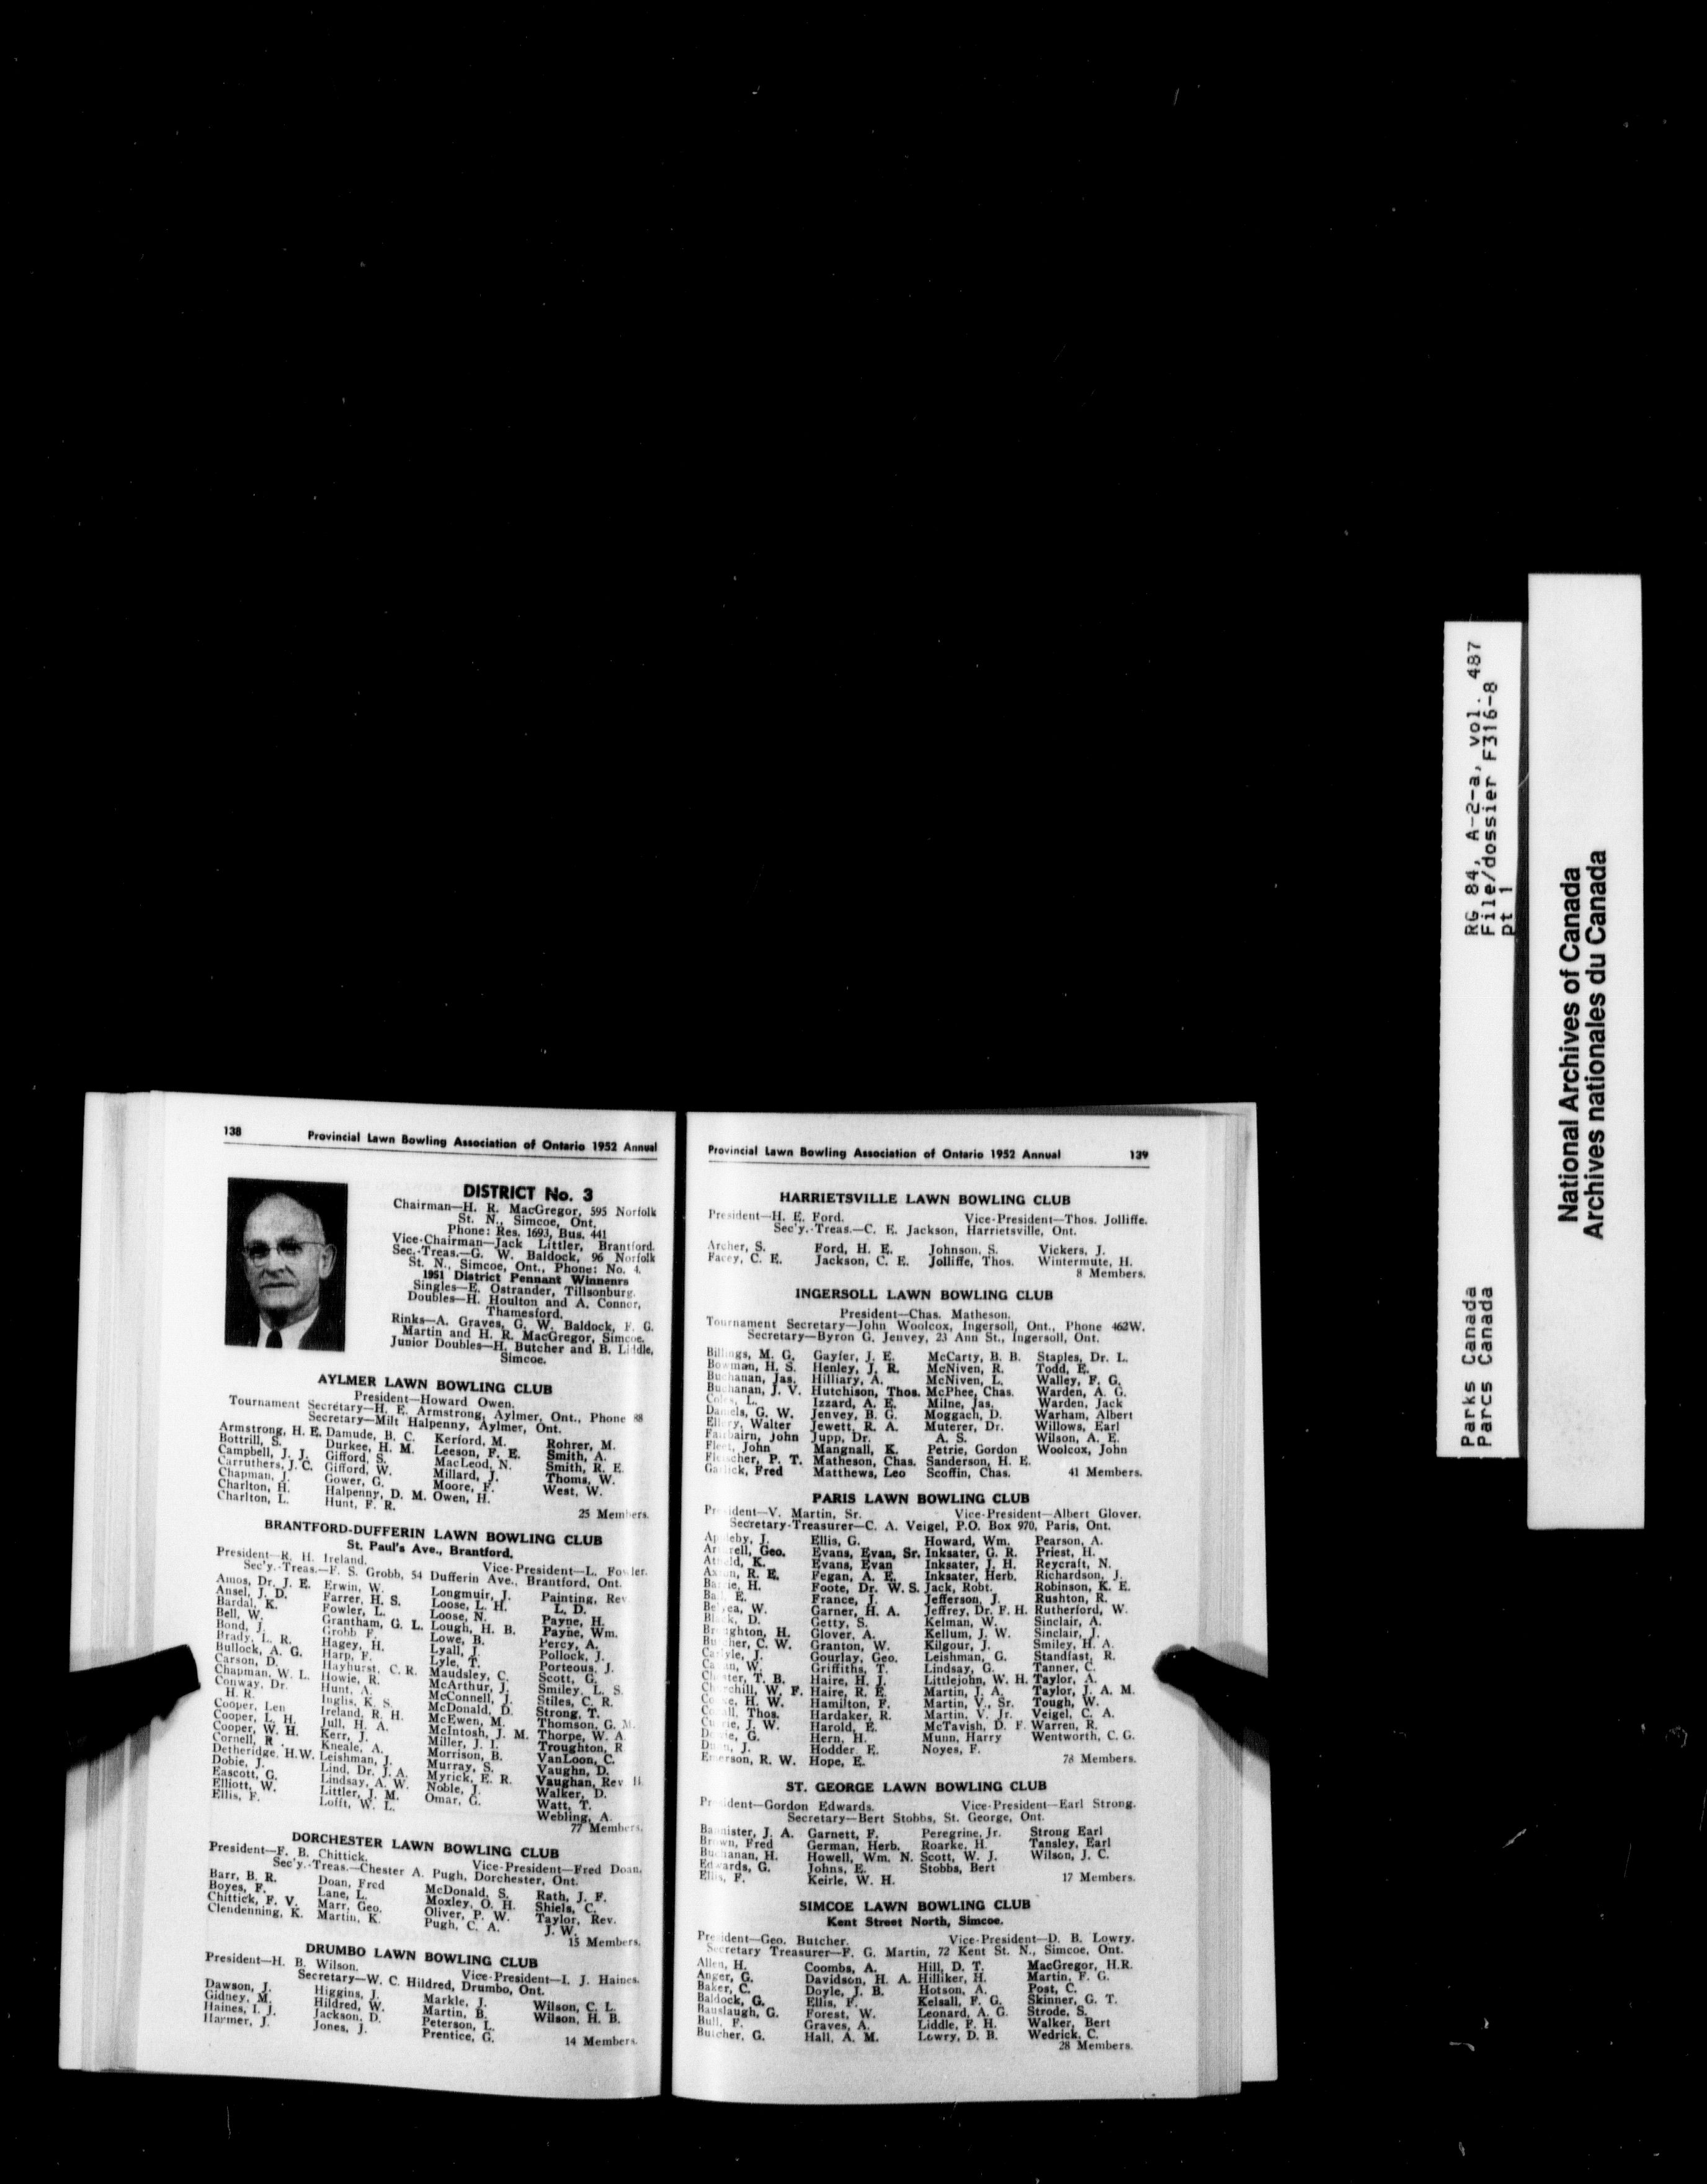 138 Provincial Lawn Bowling Association of Ontario 1952 Annual
DISTRICT No. 3
Chairman—H. R. MacGregor, 595 Norfolk
St. N., Simcoe, Ont.
Phone: Res. 1693, Bus. 441
Vice-Chairman—Jack Littler, Brantford.
Sec.-Treas.—G. W. Baldock, 96 Norfolk
St. N., Simcoe, Ont., Phone: No. 4.
1951 District Pennant Winnenrs
Singles—E. Ostrander, Tillsonburg.
Doubles—H. Houlton and A. Connor,
Thamesford.
Rinks—A. Graves, G. W. Baldock, F. G.
Martin and H. R. MacGregor, Simcoe.
Junior Doubles—H. Butcher and B. Liddle,
Simcoe.
AYLMER LAWN BOWLING CLUB
President—Howard Owen.
Tournament Secretary—H. E. Armstrong, Aylmer, Ont., Phone 88
Secretary—Milt Halpenny, Aylmer, Ont.
Armstrong, H. E. Damude, B. C. Kerford, M. Rohrer, M.
Bottrill, S. Durkee, H. M. Leeson, F. E. Smith, A.
Campbell, J. J. Gifford, S. MacLeod, N. Smith, R. E.
Carruthers, J. C. Gifford, W. Millard, J. Thoms, W.
Chapman, J. Gower, G. Moore, F. West, W.
Charlton, H. Halpenny, D. M. Owen, H.
Charlton, L. Hunt, F. R.
25 Members.
BRANTFORD-DUFFERIN LAWN BOWLING CLUB
St. Paul's Ave., Brantford.
President—R. H. Ireland. Vice-President—L. Fowler.
Sec'y.-Treas.—F. S. Grobb, 54 Dufferin Ave., Brantford, Ont.
Amos, Dr. J. E. Erwin, W. Longmuir, J. Painting, Rev.
Ansel, J. D. Farrer, H. S. Loose, L. H. L. D.
Bardal, K. Fowler, L. Loose, N. Payne, H.
Bell, W. Grantham, G. L. Lough, H. B. Payne, Wm.
Bond, J. Grobb F. Lowe, B. Percy, A.
Brady, L. R. Hagey, H. Lyall, J. Pollock, J.
Bullock, A. G. Harp, F. Lyle, T. Porteous, J.
Carson, D. Hayhurst, C. R. Maudsley, C. Scott, G.
Chapman, W. L. Howie, R. McArthur, J. Smiley, L. S.
Conway, Dr. Hunt, A. McConnell, J. Stiles, C. R.
H. R. Inglis, K. S. McDonald, D. Strong, T.
Cooper, Len Ireland, R. H. McEwen, M. Thomson, G. M.
Cooper, L. H. Jull, H. A. McIntosh, J. M. Thorpe, W. A.
Cooper, W. H. Kerr, J. Miller, J. I. Troughton, R
Cornell, R . Kneale, A. Morrison, B. VanLoon, C.
Detheridge, H.W. Leishman, J. Murray, S. Vaughn, D.
Dobie, J. Lind, Dr. J. A. Myrick, E. R. Vaughan, Rev
Eascott, G. Lindsay, A. W. Noble, J. Walker, D.
Elliott, W. Littler, J. M. Omar, G. Watt, T.
Ellis, F. Lofft, W. L. Webling, A.
77 Members.
DORCHESTER LAWN BOWLING CLUB
President—F. B. Chittick. Vice-President—Fred Doan.
Sec'y.-Treas.—Chester A. Pugh, Dorchester, Ont.
Barr, B. R. Doan, Fred McDonald, S. Rath, J. F.
Boyes, F. Lane, L. Moxley, O. H. Shiels, C.
Chittick, F. V. Marr, Geo. Oliver, P. W. Taylor, Rev.
Clendenning, K. Martin, K. Pugh, C. A. J. W.
15 Members.
DRUMBO LAWN BOWLING CLUB
President—H. B. Wilson. Vice-President—I. J. Haines.
Secretary—W. C. Hildred, Drumbo, Ont.
Dawson, J. Higgins, J. Markle, J. Wilson, C. L.
Gidney, M. Hildred, W. Martin, B. Wilson, H. B.
Haines, I. J. Jackson, D. Peterson, L.
Harmer, J. Jones, J. Prentice, G.
14 Members.
Provincial Lawn Bowling Association of Ontario 1952 Annual 139
HARRIETSVILLE LAWN BOWLING CLUB
President—H. E. Ford. Vice-President—Thos. Jolliffe.
Sec'y.-Treas.—C. E. Jackson, Harrietsville, Ont.
Archer, S. Ford, H. E. Johnson, S. Vickers, J.
Facey, C. E. Jackson, C. E. Jolliffe, Thos. Wintermute, H.
8 Members.
INGERSOLL LAWN BOWLING CLUB
President—Chas. Matheson.
Tournament Secretary—John Woolcox, Ingersoll, Ont., Phone 462W.
Secretary—Byron G. Jenvey, 23 Ann St., Ingersoll, Ont.
Billings, M. G. Gayfer, J. E. McCarty, B. B. Staples, Dr. L.
Bowman, H. S. Henley, J. R. McNiven, R. Todd, E.
Buchanan, Jas. Hilliary, A. McNiven, L. Walley, F. G.
Buchanan, J. V. Hutchison, Thos. McPhee, Chas. Warden, A. G.
Coles, L. Izzard, A. E. Milne, Jas. Warden, Jack
Daniels, G. W. Jenvey, B. G. Moggach, D. Warham, Albert
Ellery, Walter Jewett, R. A. Muterer, Dr. Willows, Earl
Fairbairn, John Jupp, Dr. A. S. Wilson, A. E.
Fleet, John Mangnall, K. Petrie, Gordon Woolcox, John
Fleischer, P. T. Matheson, Chas. Sanderson, H. E.
Garlick, Fred Matthews, Leo Scoffin, Chas. 41 Members.
PARIS LAWN BOWLING CLUB
President—V. Martin, Sr. Vice-President—Albert Glover.
Secretary-Treasurer—C. A. Veigel, P.O. Box 970, Paris, Ont.
Appleby, J. Ellis, G. Howard, Wm. Pearson, A.
Geo. Evans, Evan, Sr. Inksater, G. R. Priest, H.
K. Evans, Evan Inksater, J. H. Reycraft, N.
R. E. Fegan, A. E. Inksater, Herb. Richardson, J.
H. Foote, Dr. W. S. Jack, Robt. Robinson, K. E.
E. France, J. Jefferson, J. Rushton, R.
W. Garner, H. A. Jeffrey, Dr. F. H. Rutherford, W.
D. Getty, S. Kelman, W. Sinclair, A.
H. Glover, A. Kellum, J. W. Sinclair, J.
C. W. Granton, W. Kilgour, J. Smiley, H. A.
Carlyle, J. Gourlay, Geo. Leishman, G. Standfast, R.
W. Griffiths, T. Lindsay, G. Tanner, C.
T. B. Haire, H. J. Littlejohn, W. H. Taylor, A.
Churchill, W. F. Haire, R. E. Martin, J. A. Taylor, J. A. M.
H. W. Hamilton, F. Martin, V., Sr. Tough, W.
Thos. Hardaker, R. Martin, V. Jr. Veigel, C. A.
J. W. Harold, E. McTavish, D. F. Warren, R.
G. Hern, H. Munn, Harry Wentworth, C. G.
J. Hodder E. Noyes, F.
Emerson, R. W. Hope, E. 78 Members.
ST. GEORGE LAWN BOWLING CLUB
President—Gordon Edwards. Vice-President—Earl Strong.
Secretary—Bert Stobbs, St. George, Ont.
Bannister, J. A. Garnett, F. Peregrine, Jr. Strong Earl
Brown, Fred German, Herb. Roarke, H. Tansley, Earl
Buchanan, H. Howell, Wm. N. Scott, W. J. Wilson, J. C.
Edwards, G. Johns, E. Stobbs, Bert
Ellis, F. Keirle, W. H. 17 Members.
SIMCOE LAWN BOWLING CLUB
Kent Street North, Simcoe.
President—Geo. Butcher. Vice-President—D. B. Lowry.
Secretary Treasurer—F. G. Martin, 72 Kent St. N., Simcoe, Ont.
Allen, H. Coombs, A. Hill, D. T. MacGregor, H.R.
Anger, G. Davidson, H. A. Hilliker, H. Martin, F. G.
Baker, C. Doyle, J. B. Hotson, A. Post, C.
Baldock, G. Ellis, F. Kelsall, F. G. Skinner, G. T.
Banslaugh, G. Forest, W. Leonard, A. G. Strode, S.
Bull, F. Graves, A. Liddle, F. H. Walker, Bert
Butcher, G. Hall, A. M. Lowry, D. B. Wedrick, C.
28 Members.
Parks Canada
Parcs Canada
RG 84, A-2-a, vol. 487
File/dossier F316-8
pt 1
National Archives of Canada
Archives nationales du Canada